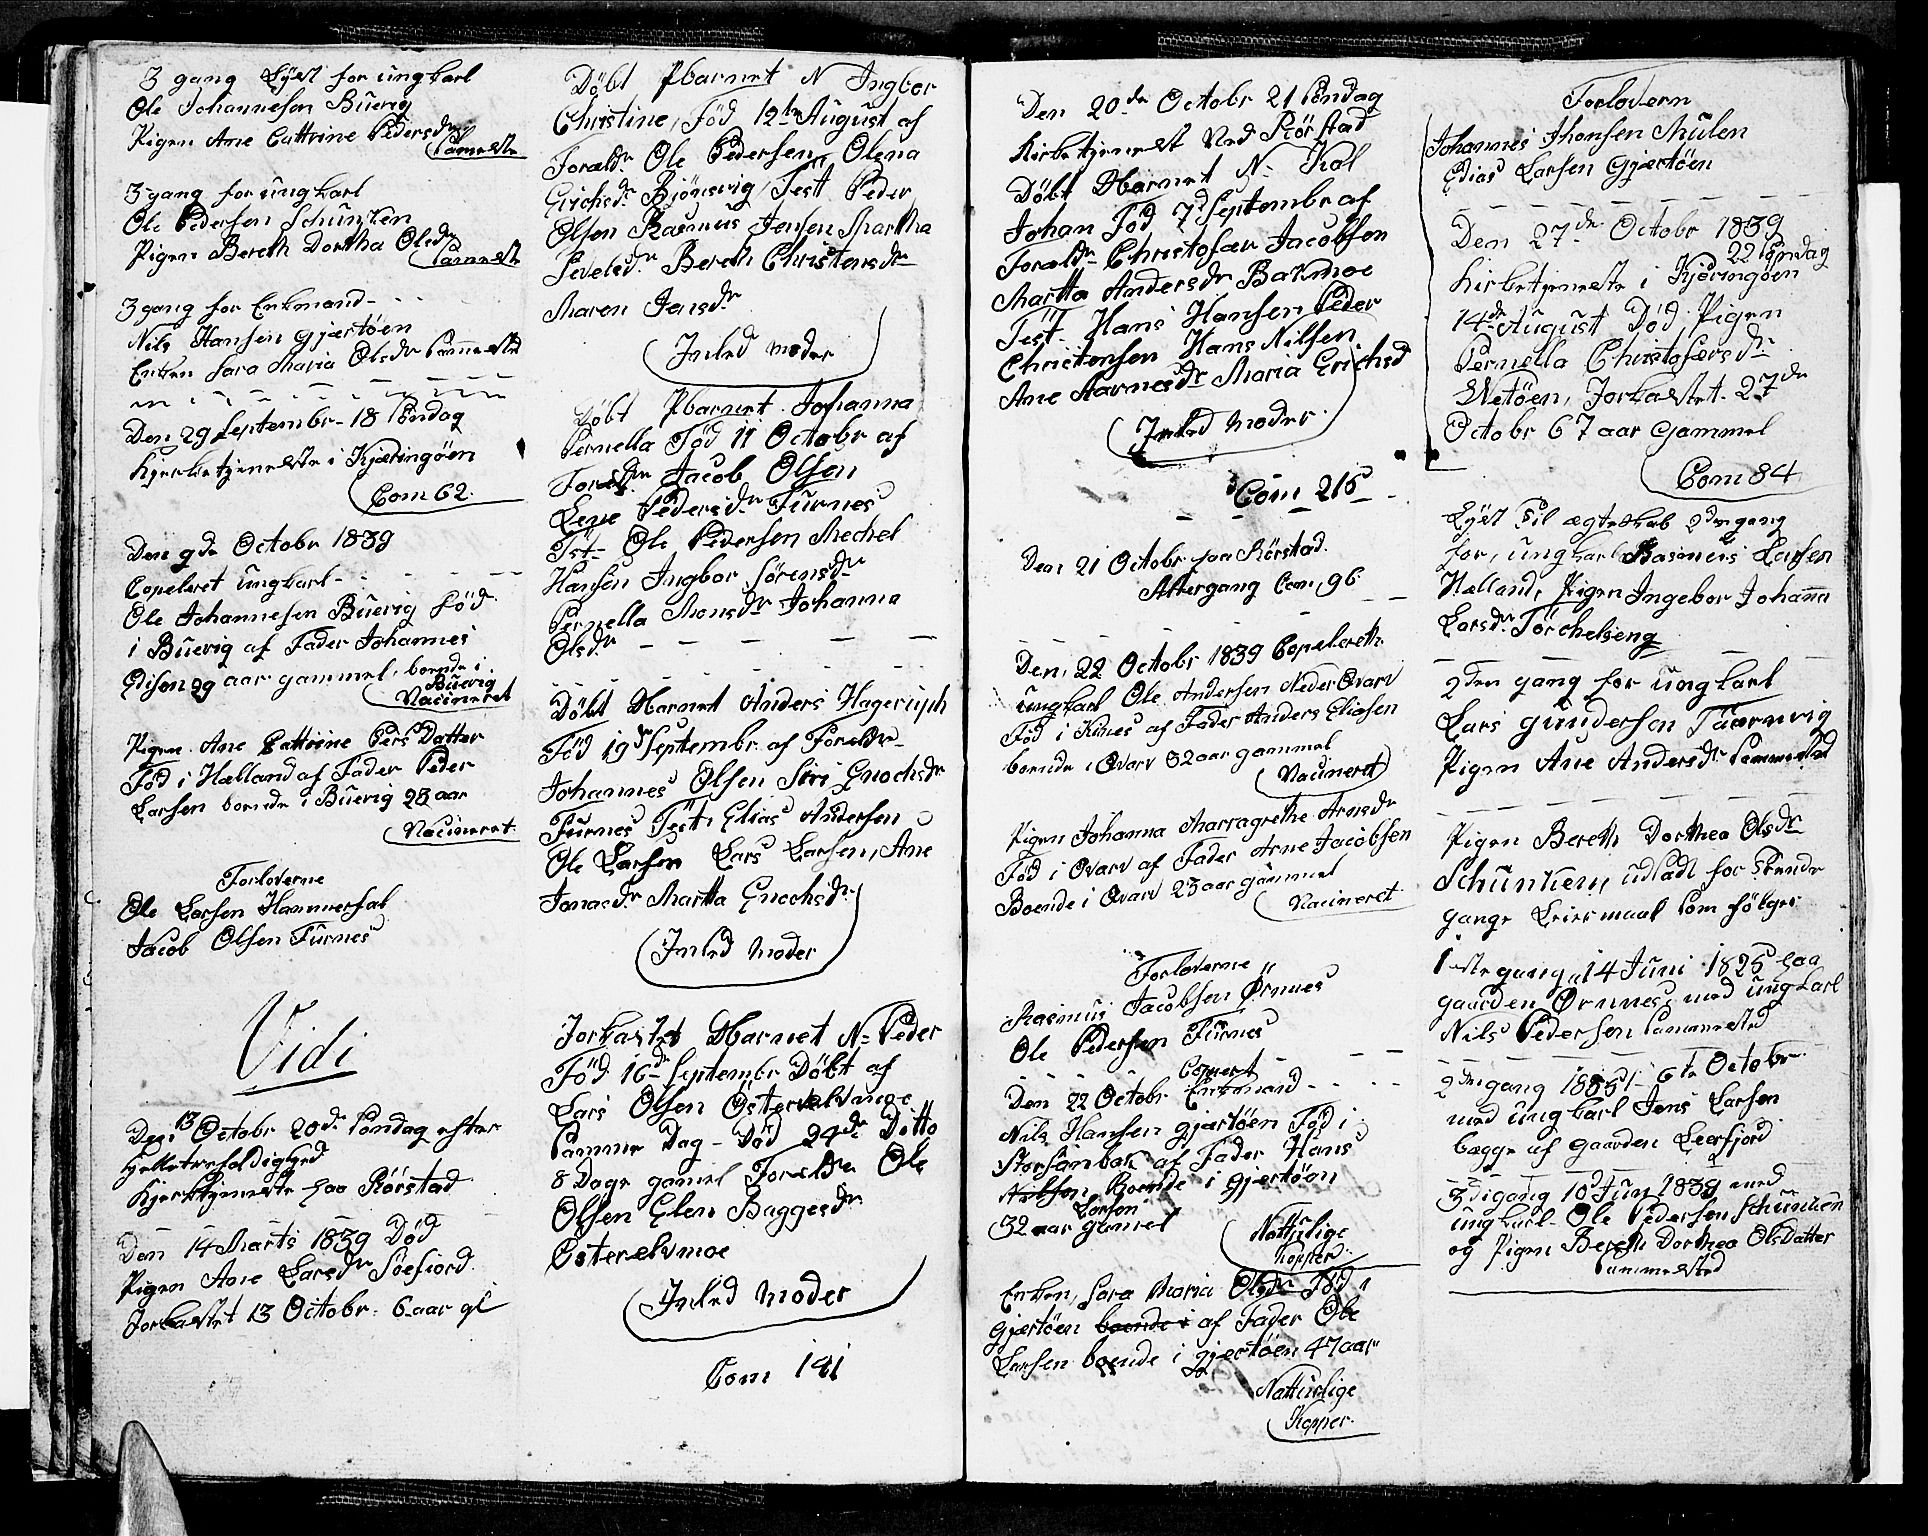 3 gang Lyst for ungkarl
Ole Johannesen Buevig
Pigen Ane Cattrine Pedersdr
Sammeste
3 gang for ungkarl
Ole Pedersen Schunken
Pigen Bereth Dorthea Olsdr
Sammeste
3 gang for Enkmand
Nils Hansen Gjærtöen
Enken Sara Maria Olsdr Sammested
Den 29 Septembr 18 Söndag
Kjerketjeneste i Kjæringöen
Com 62.
Den 9de Octobr 1839
Copeleret ungkarl
Ole Johannesen Buevig Föd
i Buevig af Fader Johannes
Edisen 29 aar gammel, boende i
Buevig
Vacineret
Pigen Ane Cattrine Pers Datter
Föd i Hælland af Fader Peder
Larsen boende i Buevig 28 aar
Vacineret
Forloverne
Ole Larsen Hammerfal
Jacob Olsen Furnes
Vidi
Den 13 Octobr 20de Söndag efter
Kjerketjeneste paa Rörstad
Den 14 Marts 1839 Död
Pigen Ane Larsdr Söefiord
Jorkastet 13 Octobr: 6 aar gl
Döbt Pbarnet N Ingbor
Christine, Föd 12te August af
Foreldr Ole Pedersen, Olena
Erichsdr Bjönsvig, Test Peder
Olsen Rasmus Jensen Martha
Bereth Christensdr
Maren Jensdr
Inled moder
Döbt Pbarnet Johanna
Pernella Föd 11 Octobr af
Foreldr Jacob Olsen
Lene Pedersdr Furnes
Tst Ole Pedersen Mechel
Hansen Ingbor Sörensdr
Pernella Monsdr Johanna
Olsdr
Döbt Dbarnet Anders Hageruph
Föd 19de Septembr af Foreldr
Johannes Olsen Siri Enochsdr
Furnes Test: Elias Andersen
Ole Larsen Lars Larsen, Ane
Jonasdr Martta Enochsdr
Inled Moder
Jorkastet Dbarnet N= Peder
Föd 16de Septembr Döbt af
Lars Olsen
Samme Dag - Död 24de Ditto
8 Dage gamel Foreldre Ole
Olsen Elen Baggesdr
Inled moder
Com 141
Den 20de Octobr 21 Söndag
Kirketjenest Ved Rörstad
Döbt Dbarnet N: Kol
Johan Föd 7de Septembr af
Foreldr Christofær Jacobsen
Martta Andersdr Bakmoe
Test Hans Hansen Peder
Christensen Hans Nilsen
Ane Aarnesdr Maria Erichsd
Inled moder
Com 215
Den 21 Octobr paa Rörstad.
Altergang Com, 96
Den, 22 Octobr 1839 Copelereth
ungkarl Ole Andersen Neder Qvarv
Föd i af Fader Anders Eliasen
boende i Qvarv 32 aar gammel
Vacineret
Pigen Johanna Marragrethe Arnsdr
Föd i Qvarv af Fader Arne Jacobsen
Boende i Qvarv 23 aar gammel
Vacineret
Forloverne
Rasmus Jacobsen Örnnes
Ole Pedersen Furnes
Den 22 Octobr Enkmand
Nils Hansen gjærtöen Föd i
af Fader Hans
Boende i Gjertöen
Larsen
32 aar gamel
Nattulige
kopper
Enken, Sara Maria Olsdr Föd i
Gjærtöen boende i af Fader Ole
Larsen boende i gjærtöen 47 aar
Nattulige
Kopper.
Forlovern
Johannes Jhansen Mulen
Edias Larsen Gjærtöen
Den 27de Octobr 1839
22 Söndag
Kirketjeneste i Kjeringöen
14de August Död, Pigen
Pernella Christofærsdr
Jorkastet 27de
Octobr 67 aar Gammel
Com 84
Lyst Til ægteskab 2den gang
for, ungkarl Rasmus Larsen
Hælland, Pigen Ingebor Johanna
Larsdr Törchelseng
2den gang for ungkarl
Lars Gundersen Taarnvig
Pigen Ane Andersdr Sammested
Pigen Bereth Dorthea Olsdr
Schunken, udladt for Trende
gange Leiermaal Som fölger
1ste gang, 14 Juni 1825 paa
gaarden Ornnes, med ungkarl
Nils Pedersen Sammested
2den gang 1835 6te Octobr
med ungkarl Jens Larsen
begge af gaarden Leerfjord
3di gang 10 Juny 1839 med
ungkarl Ole Pedersen Schunken
og Pigen Bereth Dorthea OlsDatter
Sammested